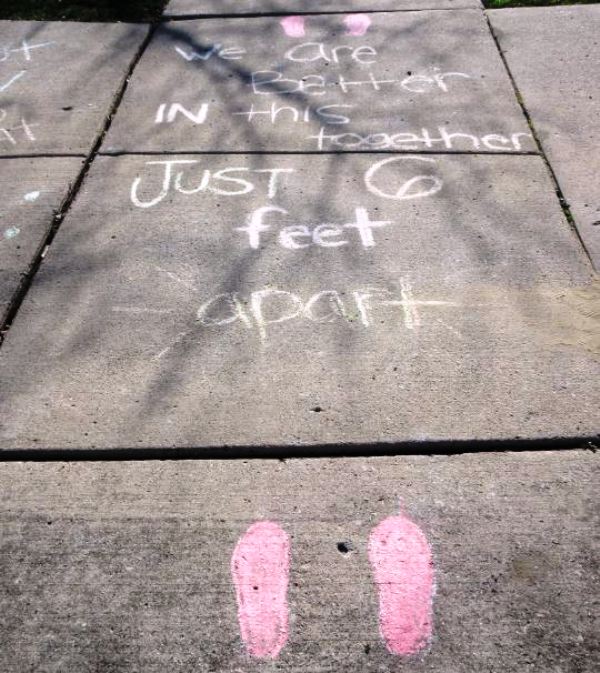 we are
Better
IN this
together
JUST 6
feet
apart